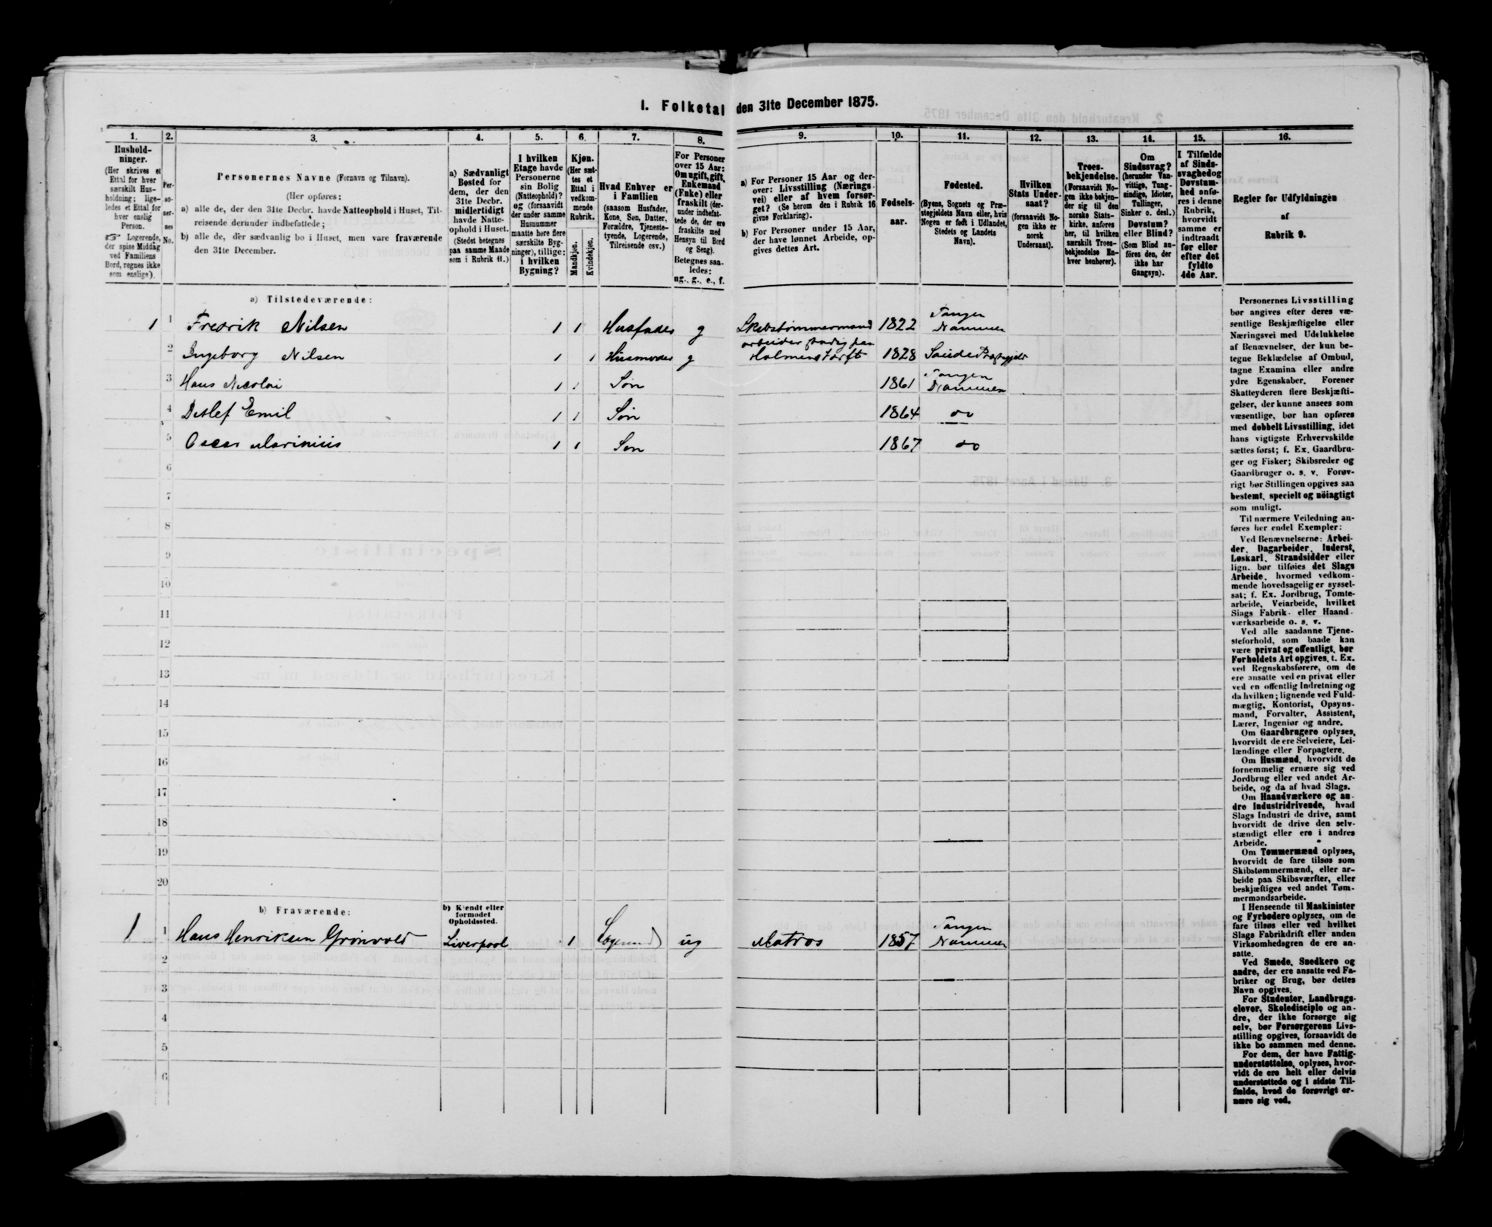 I. Folketal den 31te December 1875.
1. 2. 3. 4. 5. 6. 7. 8. 9. 10. 11. 12. 13. 14. 15. 16.
Hushold-
ninger.
(Her skrives et
Ettal for hver
særskilt Hus-
holdning; lige-
ledes et Ettal for
hver enslig
Person.
Logerende,
der spise Middag
ved Familiens
Bord, regnes ikke
som enslige).
Per-
so-
ner-
nes
No.
Personernes Navne (Fornavn og Tilnavn).
(Her opføres:
a) alle de, der den 31te Decbr. havde Natteophold i Huset, Til-
reisende derunder indbefattede;
b) alle de, der sædvanlig bo i Huset, men vare fraværende
den 31te December.
a) Sædvanligt
Bosted for
dem, der den
31te Decbr.
midlertidigt
havde Natte-
ophold i Huset.
(Stedet betegnes
paa samme Maade
som i Rubrik 11.)
I hvilken
Etage havde
Personerne
sin Bolig
(Natteophold)?
og (forsaavidt
der under samme
Husnummer
maatte høre flere
særskilte Byg-
ninger), tillige:
i hvilken
Bygning?
Kjøn.
(Her sæt-
tes et
Ettal i
vedkom-
mende
Rubrik.
Mandkjøn.
Kvindekjøn.
Hvad Enhver er
i Familien
(saasom Husfader,
Kone, Søn, Datter,
Forældre, Tjeneste-
tyende, Logerende,
Tilreisende osv.)
For Personer
over 15 Aar:
Om ugift, gift,
Enkemand
(Enke) eller
fraskilt (der-
under indbefat-
tede de, der ere
fraskilte med
Hensyn til Bord
og Seng).
Betegnes saa-
ledes:
ug., g., e., f.
a) For Personer 15 Aar og der-
over: Livsstilling (Nærings-
vei) eller af hvem forsør-
get? (Se herom den i Rubrik 16
givne Forklaring).
b) For Personer under 15 Aar,
der have lønnet Arbeide, op-
gives dettes Art.
Fødsels-
aar.
Fødested.
(Byens, Sognets og Præ-
stegjeldets Navn eller, hvis
Nogen er født i Udlandet,
Stedets og Landets
Navn).
Hvilken
Stats Under-
saat?
(forsaavidt No-
gen ikke er
norsk
Undersaat).
Troes-
bekjendelse.
(Forsaavidt No-
gen ikke bekjen-
der sig til den
norske Stats-
kirke, anføres
her, til hvilken
særskilt Troes-
bekjendelse En-
hver henhører).
Om
Sindssvag?
(herunder Van-
vittige, Tung-
sindige, Idioter,
Tullinger,
Sinker o. desl.)
Døvstum?
eller Blind?
(Som Blind an-
føres den, der
ikke har
Gangsyn).
I Tilfælde
af Sinds-
svaghed og
Døvstum-
hed anfø-
res i denne
Rubrik,
hvorvidt
samme er
indtraadt
før eller
efter det
fyldte
4de Aar.
Regler for Udfyldningen
af
Rubrik 9.
a) Tilstedeværende:
1 1 Fredrik Nilsen 1 1 Husfader g Skibstømmermand 1822 Tangen Drammen
arbeider stadig paa
2 Ingeborg Nilsen 1 1 Husmoder g Holmens Værft 1828 Sande
3 Hans Nicolai 1 1 Søn 1861 Tangen Drammen
4 Detlef Emil 1 1 Søn 1864 do
5 Oscar Marinius 1 1 Søn 1867 do
6
7
8
9
10
11
12
13
14
15
16
17
18
19
20
b) Fraværende:
b) Kjendt eller
formodet
Opholdssted.
1 1 Hans Henriksen Grønvold Liverpool 1 Logerend ug Matros 1857 Tangen Drammen
2
3
4
5
6
Personernes Livsstilling
bør angives efter deres væ-
sentlige Beskjæftigelse eller
Næringsvei med Udelukkelse
af Benævnelser, der kun be-
tegne Beklædelse af Ombud,
tagne Examina eller andre
ydre Egenskaber. Forener
Skatteyderen flere Beskjæfti-
gelser, der kunne ansees som
væsentlige, bør han opføres
med dobbelt Livsstilling, idet
hans vigtigste Erhvervskilde
sættes først; f. Ex. Gaardbru-
ger og Fisker; Skibsreder og
Gaardbruger o. s. v. Forøv-
rigt bør Stillingen opgives saa
bestemt, specielt og nöiagtigt
som muligt.
Til nærmere Veiledning an-
føres her endel Exempler:
Ved Benævnelserne: Arbei-
der, Dagarbeider, Inderst,
Løskarl, Strandsidder eller
lign. bør tilføies det Slags
Arbeide, hvormed vedkom-
mende hovedsagelig er syssel-
sat; f. Ex. Jordbrug, Tomte-
arbeide, Veiarbeide, hvilket
Slags Fabrik- eller Haand-
værksarbeide o. s. v.
Ved alle saadanne Tjene-
steforhold, som baade kan
være privat og offentligt, bør
Forholdets Art opgives, t. Ex.
ved Regnskabsførere, om de
ere ansatte ved en privat eller
ved en offentlig Indretning og
da hvilken; lignende ved Fuld-
mægtig, Kontorist, Opsyns-
mand, Forvalter, Assistent,
Lærer, Ingeniør og andre.
Om Gaardbrugere oplyses,
hvorvidt de ere Selveiere, Lei-
lændinge eller Forpagtere.
Om Husmænd, hvorvidt de
fornemmelig ernære sig ved
Jordbrug eller ved andet Ar-
beide, og da af hvad Slags.
Om Haandværkere og an-
dre Industridrivende, hvad
Slags Industri de drive, samt
hvorvidt de drive den selv-
stændigt eller ere i andres
Arbeide.
Om Tømmermænd oplyses,
hvorvidt de fare tilsøs som
Skibstømmermænd, eller ar-
beide paa Skibsværfter, eller
beskjæftiges ved andet Tøm-
mermandsarbeide.
I Henseende til Maskinister
og Fyrbødere oplyses, om de
fare tilsøs eller ved hvilket
Slags Fabrikdrift eller anden
Virksomhedsgren de ere an-
satte.
Ved Smede, Snedkere og
andre, der ere ansatte ved Fa-
briker og Brug, bør dettes
Navn opgives.
For Studenter, Landbrugs-
elever, Skoledisciple og an-
dre, der ikke forsørge sig
selv, bør Forsørgerens Livs-
stilling opgives, forsaavidt de
ikke bo sammen med denne.
For dem, der have Fattig-
understøttelse, oplyses, hvor-
vidt de ere helt eller delvis
understøttede og i sidste Til-
fælde, hvad de forøvrigt er-
nære sig ved.